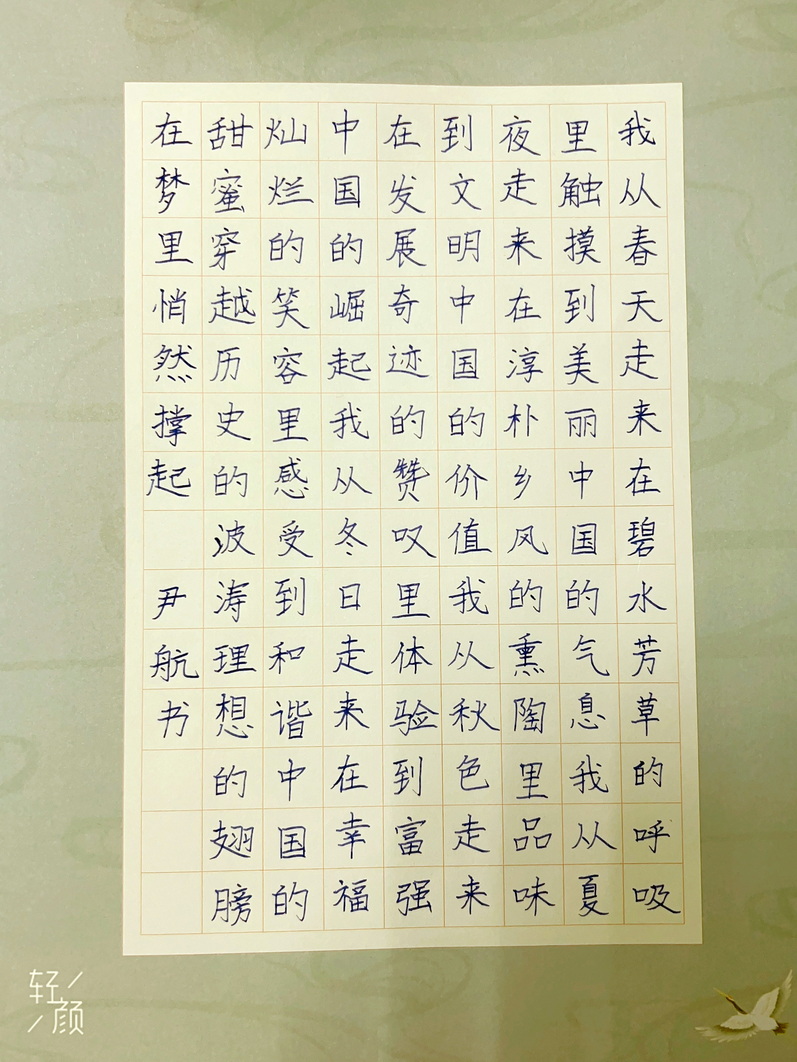 我从春天走来在碧水芳草的呼吸
里触摸到美丽中国的气息我从夏
夜走来在淳朴乡风的熏陶里品味
到文明中国的价值我从秋色走来
在发展奇迹的赞叹里体验到富强
中国的崛起我从冬日走来在幸福
灿烂的笑容里感受到和谐中国的
甜蜜穿越历史的波涛理想的翅膀
在梦里悄然撑起
尹航书
轻颜